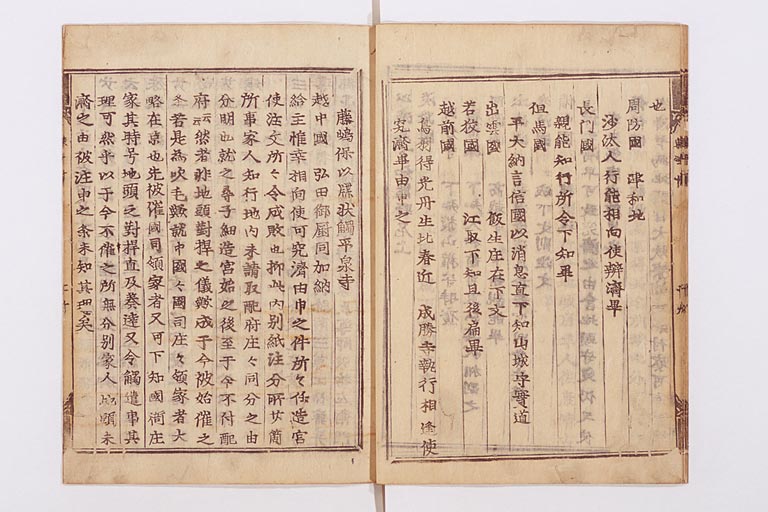 也
周防國 津和地
沙汰人行能相向使辨濟畢
長門國
親能知行所令下知畢
但馬國
平大納言信國以消息直下知山城守實道
出雲國 飯生庄在下文
若狹國 江取下知且後扁畢
越前國
鳥羽得光丹生北春近 成勝寺執行相逢使
究濟事由申之
藤嶋保以牒狀觸平泉寺
越中國 弘田御厨同加納
給主惟幸相向使可究濟由申之件所々任造宮
使注文所々令成敗也抑此内別紙注分所廿箇
所事家人知行地内未請取配府庄々同分之由
分明也就之尋子細造宮始之後至于今不付配
府云云然者非地頭對捍之儀歟成于今被始催之
条若是為吹毛歟就中國々國司庄々領家者大
略在京也先被催國司領家者又可下知國衙庄
家其時号地頭之對捍直及奏達又令觸遣事其
理可然乎以于今不催之所無分別家人地頭未
濟之由被注申之条未知其理矣